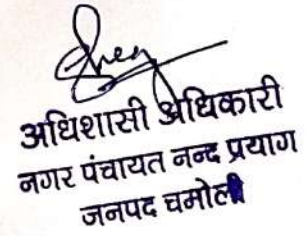 अधिशासी अधिकारी
नगर पंचायत नन्द प्रयाग
जनपद चमोली